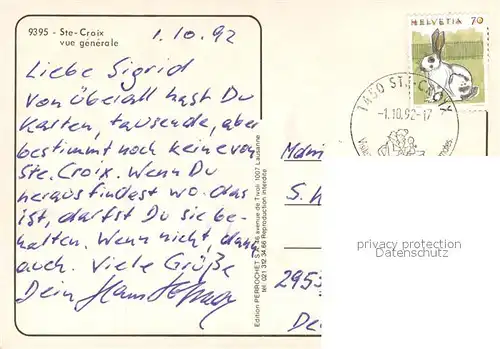 9395 - Ste-Croix
vue générale
1.10.92
Liebe Sigrid
Von überall hast Du
Karten, tausende, aber
bestimmt noch keine von
Ste. Croix. Wenn Du
herausfindest wo das
ist, darfst Du sie be-
halten. Wenn nicht, dann
auch. Viele Grüße
Dein Hans
HELVETIA 70
1450 STE-CROIX
-1.10.92-17
S.
295
De
Edition PERROCHET S.A. avenue de Tivoli 1007 Lausanne
Tél. 021 312 34 66 Reproduction interdite
privacy protection
Datenschutz